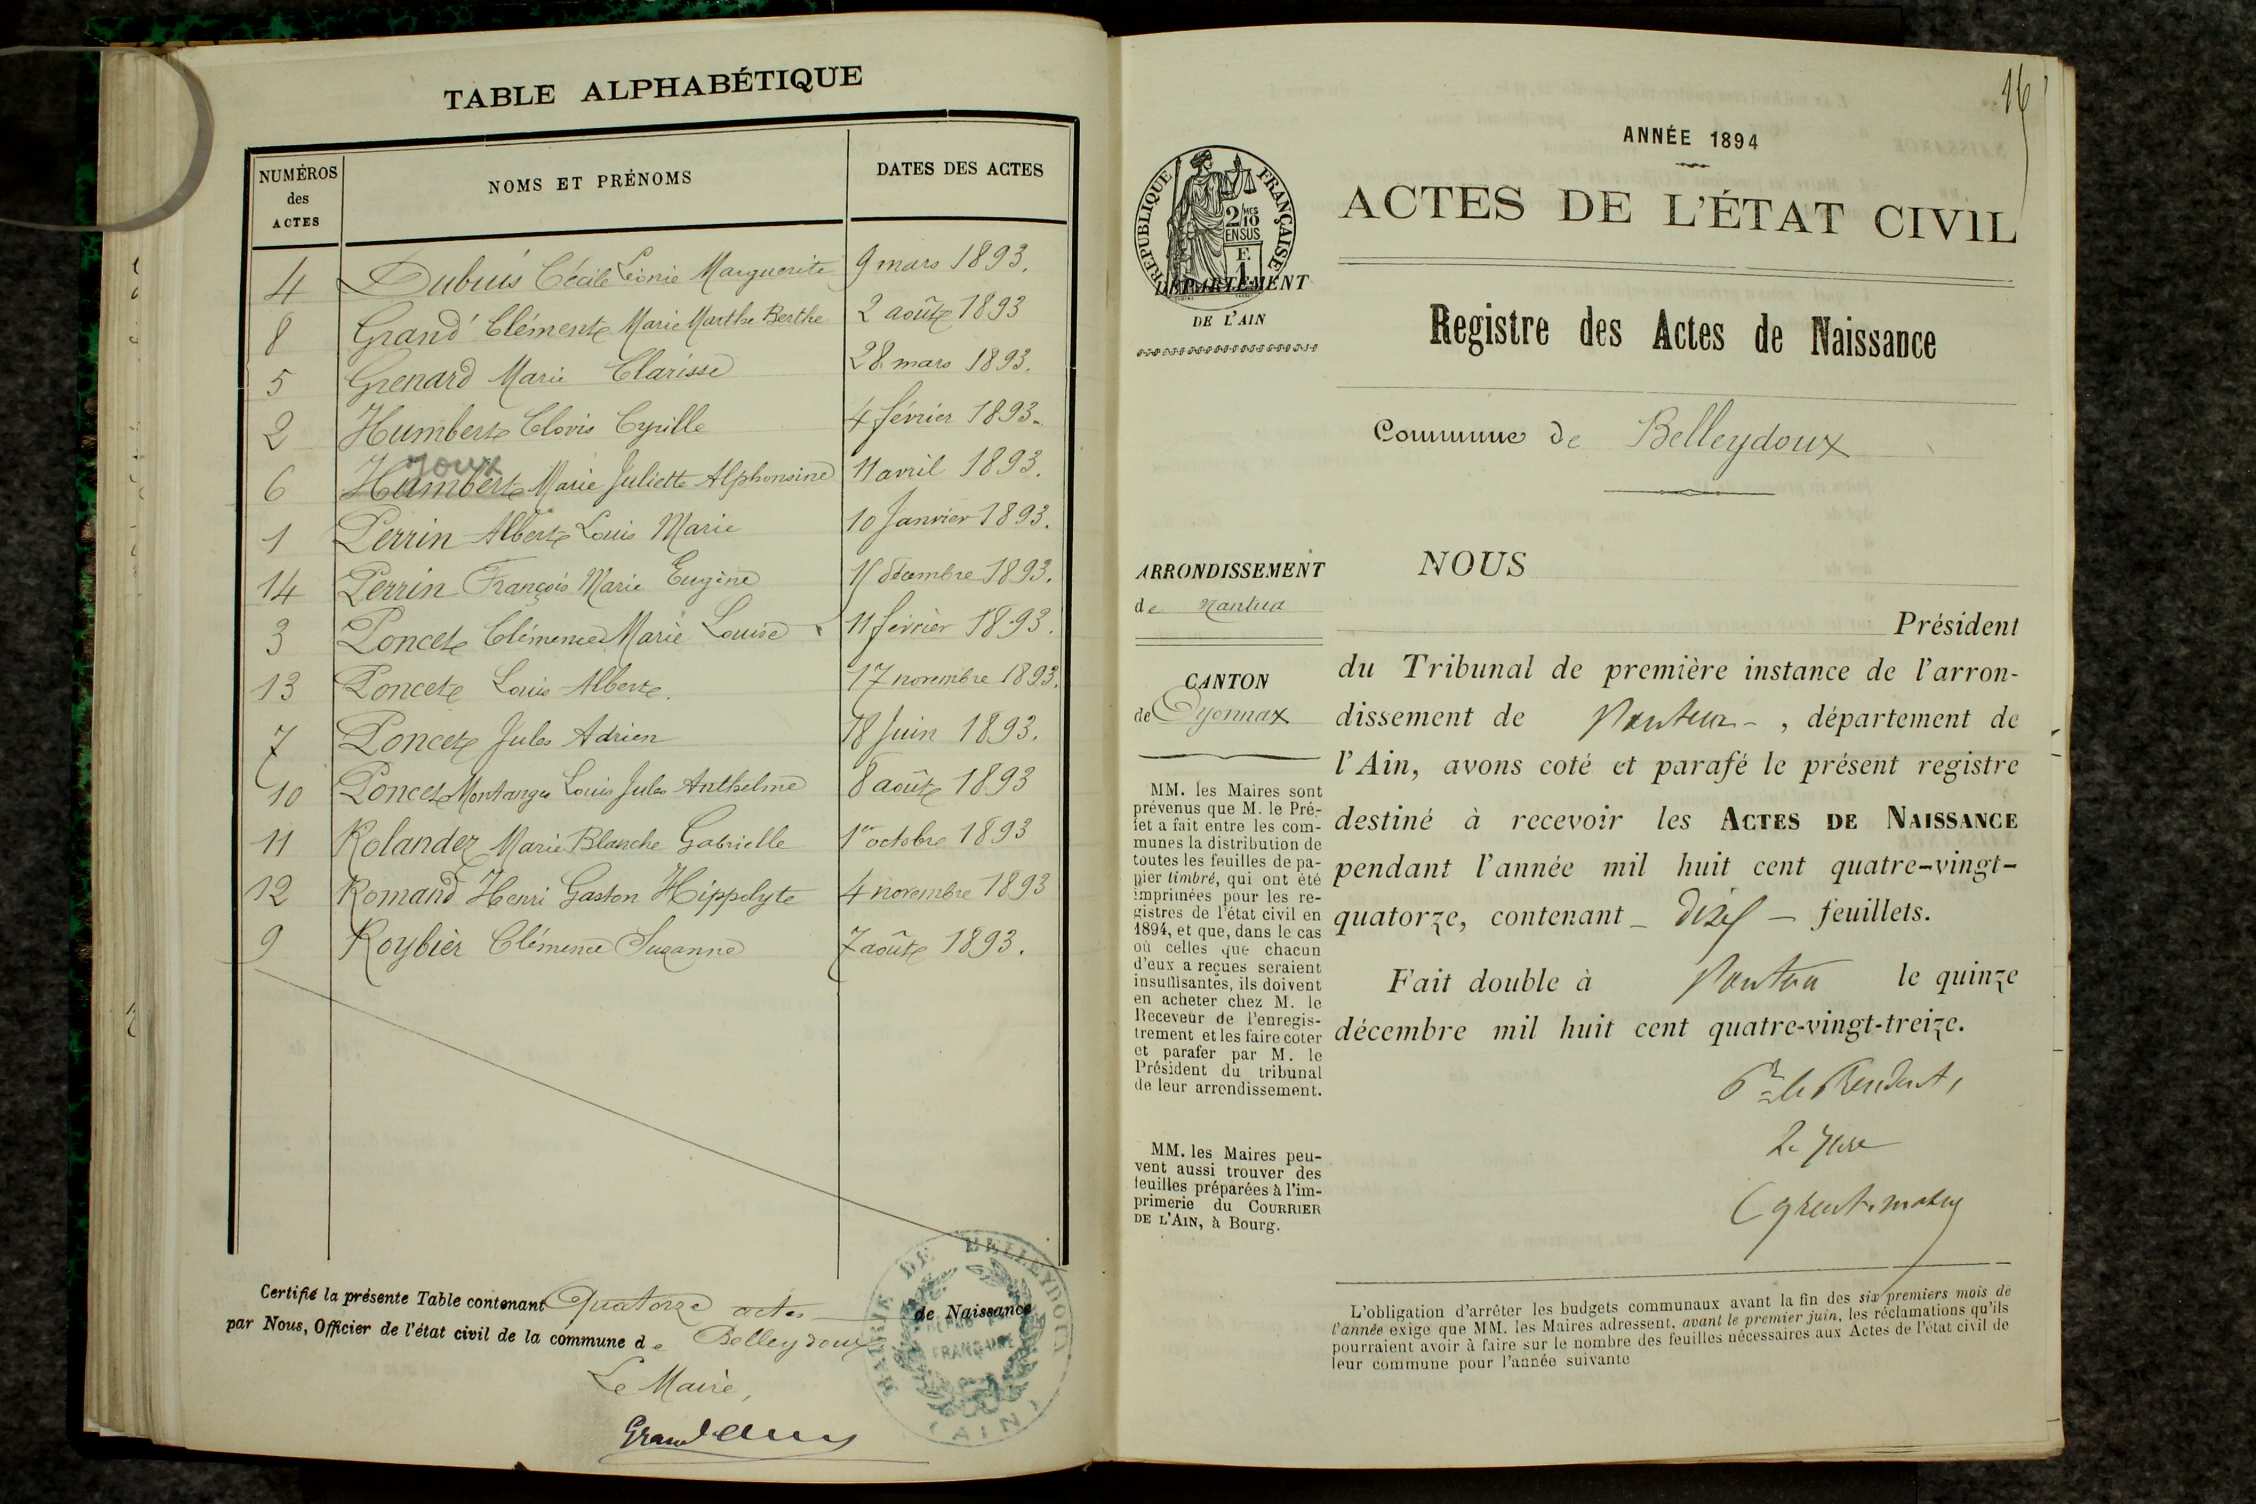 TABLE ALPHABÉTIQUE
NUMÉROS des ACTES NOMS ET PRÉNOMS DATES DES ACTES
4 Dubuis Cécile Léonie Marguerite 9 mars 1893.
8 Grand Clément Marie Marthe Berthe 2 août 1893
5 Grenard Marie Clarisse 28 mars 1893.
2 Humbert Clovis Cyrille 4 février 1893.
Joux
6 Humbert Marie Juliette Alphonsine 11 avril 1893.
1 Perrin Albert Louis Marie 10 Janvier 1893.
14 Perrin François Marie Eugène décembre 1893.
3 Poncet Clémence Marie Louise 11 février 1893.
13 Poncet Louis Albert. 17 novembre 1893.
7 Poncet Jules Adrien 18 Juin 1893.
10 Poncet Montanges Louis Jules Anthelme 8 août 1893
11 Rolandez Marie Blanche Gabrielle 1er octobre 1893
12 Romand Henri Gaston Hippolyte 4 novembre 1893
9 Roybier Clémence Suzanne 7 août 1893.
Certifié la présente Table contenant Quatorze actes de Naissance
par Nous, Officier de l'état civil de la commune de Belleydoux
Le Maire,
MAIRIE DE BELLEYDOUX
(AIN)
16
ANNÉE 1894
ACTES DE L'ÉTAT CIVIL
RÉPUBLIQUE FRANÇAISE
2/10 EN SUS
DÉPARTEMENT
DE L'AIN
Registre des Actes de Naissance
Commune de Belleydoux
ARRONDISSEMENT
de Nantua
CANTON
de Oyonnax
MM. les Maires sont
prévenus que M. le Pré-
fet a fait entre les com-
munes la distribution de
toutes les feuilles de pa-
pier timbré, qui ont été
imprimées pour les re-
gistres de l'état civil en
1894, et que, dans le cas
où celles que chacun
d'eux a reçues seraient
insuffisantes, ils doivent
en acheter chez M. le
Receveur de l'enregis-
trement et les faire coter
et parafer par M. le
Président du tribunal
de leur arrondissement.
MM. les Maires peu-
vent aussi trouver des
feuilles préparées à l'im-
primerie du COURRIER
DE L'AIN, à Bourg.
NOUS
Président
du Tribunal de première instance de l'arron-
dissement de Nantua, département de
l'Ain, avons coté et parafé le présent registre
destiné à recevoir les ACTES DE NAISSANCE
pendant l'année mil huit cent quatre-vingt-
quatorze, contenant feuillets.
Fait double à Nantua le quinze
décembre mil huit cent quatre-vingt-treize.
Pr le Président,
Le Juge
L'obligation d'arrêter les budgets communaux avant la fin des six premiers mois de
l'année exige que MM. les Maires adressent, avant le premier juin, les réclamations qu'ils
pourraient avoir à faire sur le nombre des feuilles nécessaires aux Actes de l'état civil de
leur commune pour l'année suivante